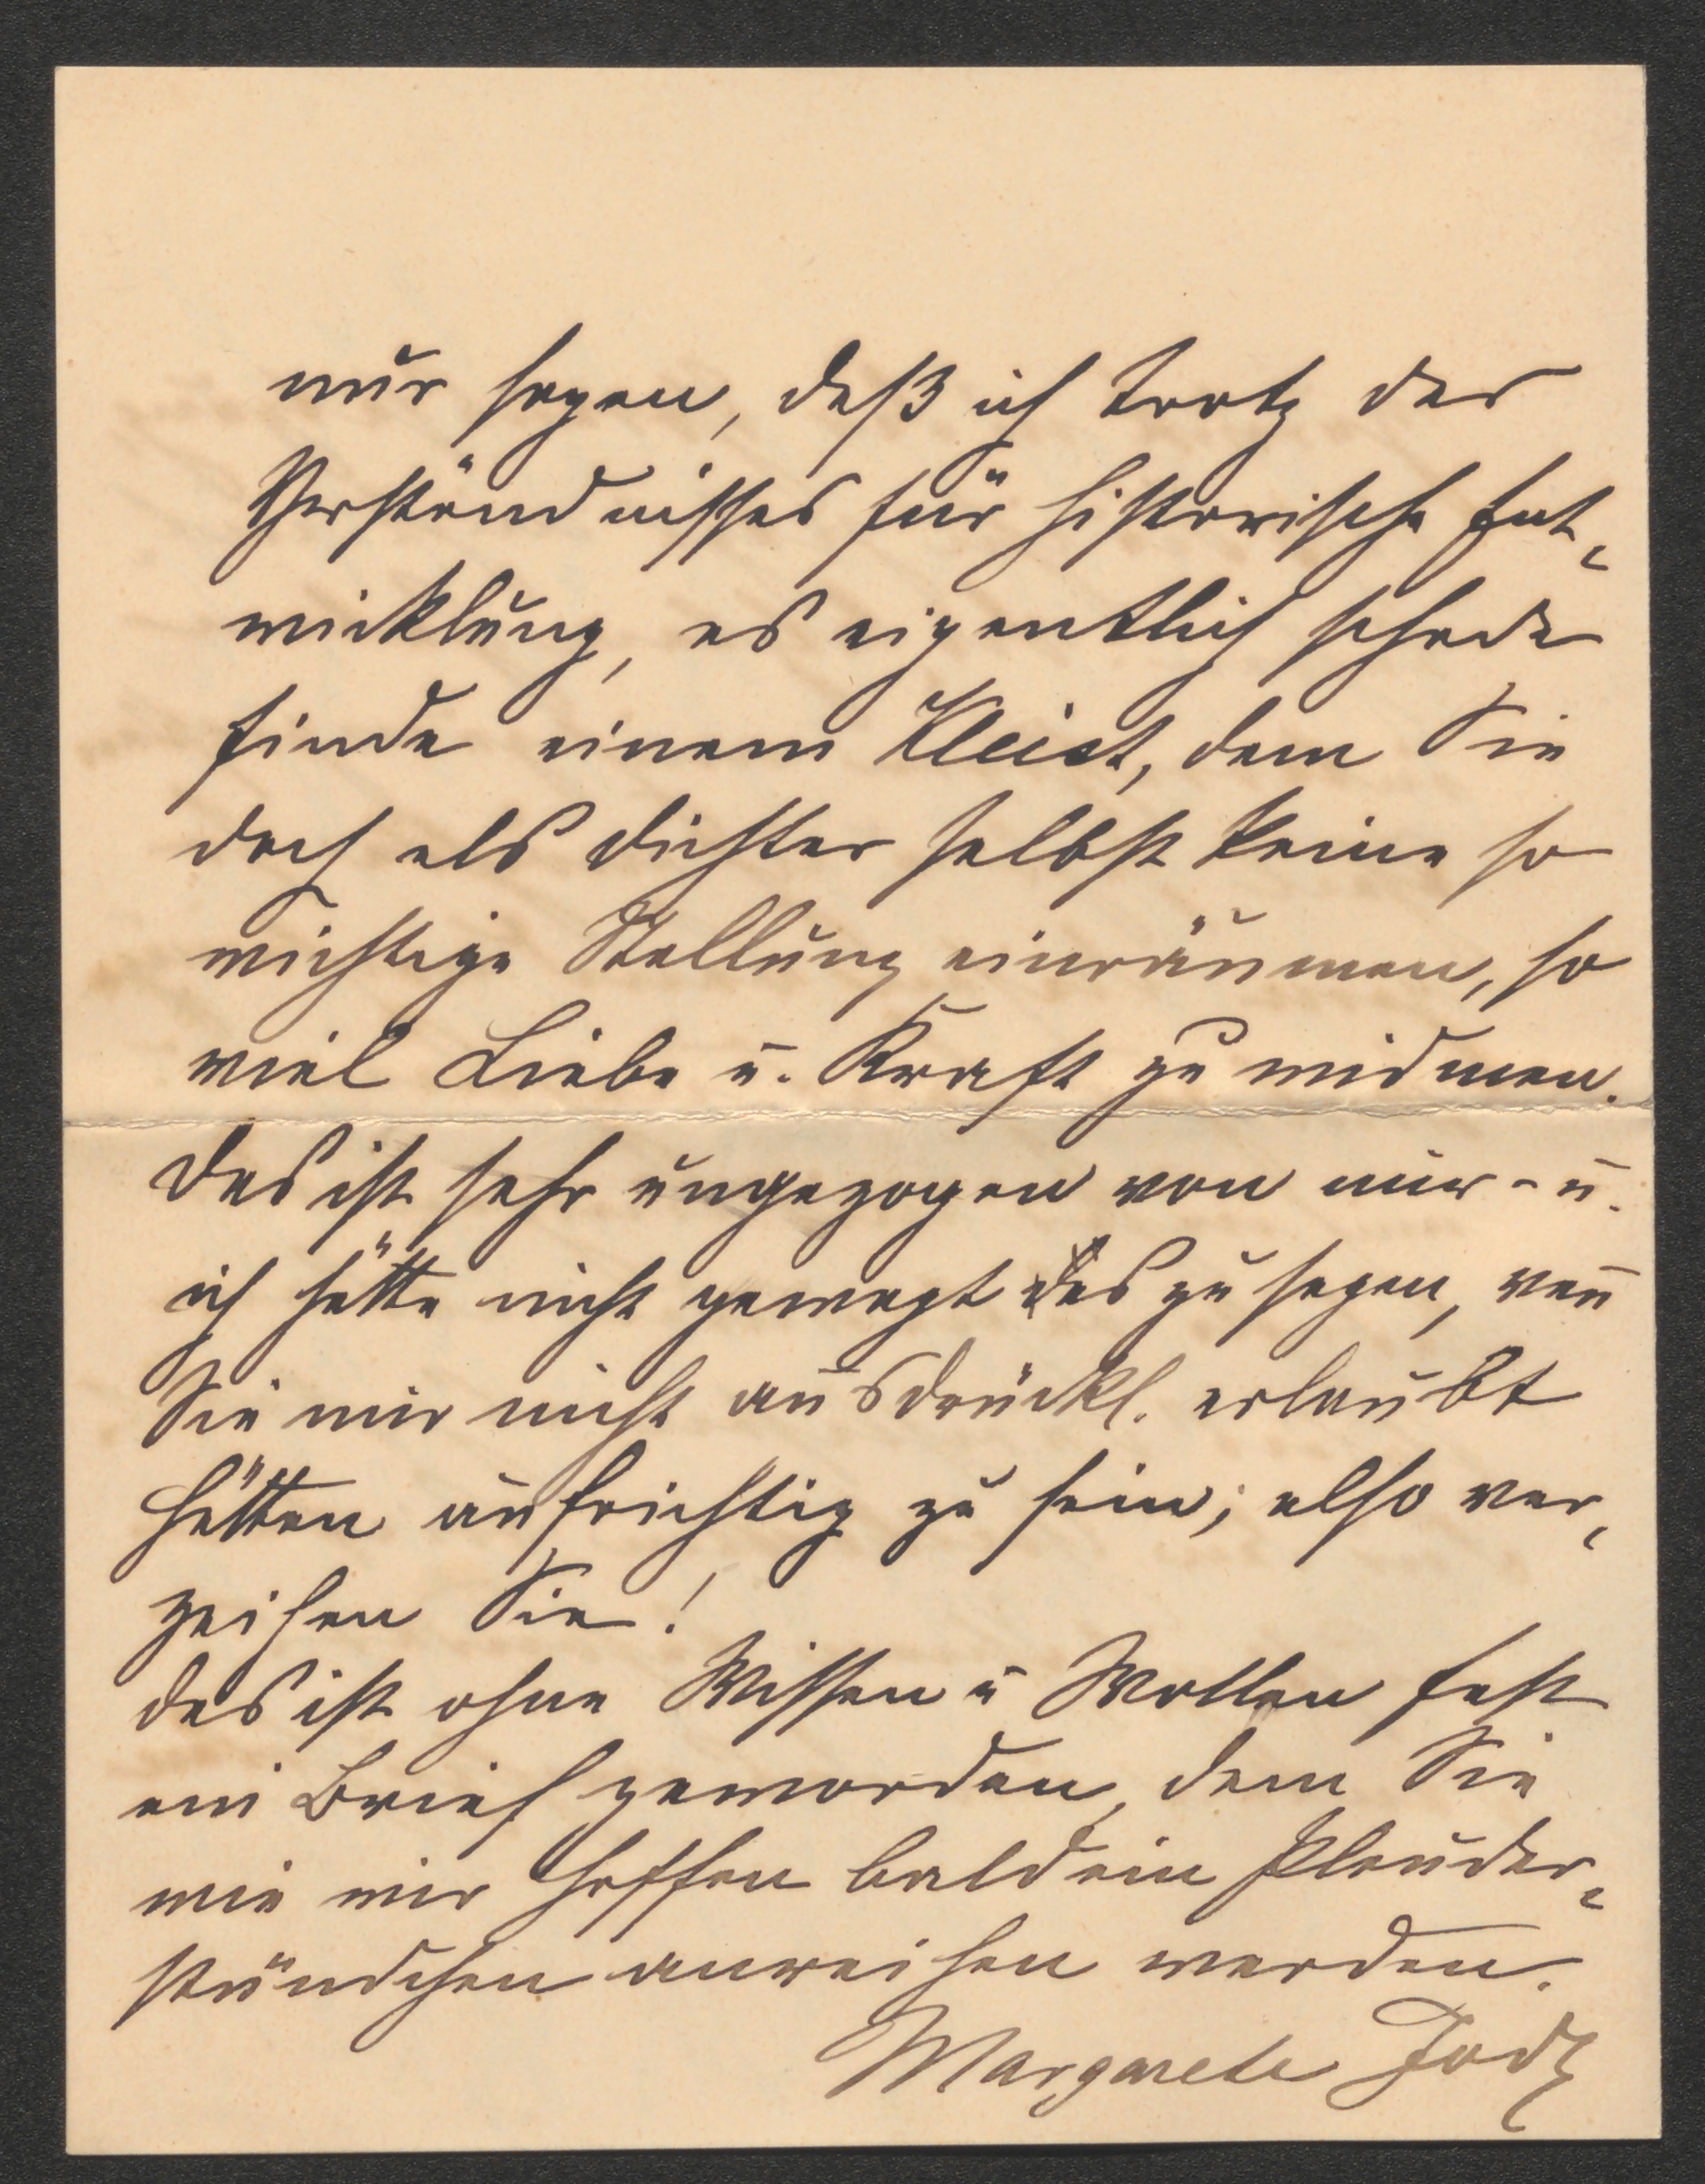 nur sagen, daß ich trotz des
Verständnisses für historische Ent-
wicklung, es eigentlich schade
finde einem Kleist, dem Sie
doch als Dichter selbst keine so
wichtige Stellung einräumen, so
viel Liebe u. Kraft zu widmen.
Das ist sehr ungezogen von mir - u.
ich hätte nicht gewagt das zu sagen, wen̄
Sie mir nicht ausdrückl. erlaubt
hätten aufrichtig zu sein; also ver-
zeihen Sie!
Das ist ohne Wissen u Wollen fast
ein Brief geworden, dem Sie
wie wir hoffen bald ein Plauder-
stündchen anreihen werden.
Margarete Jodl